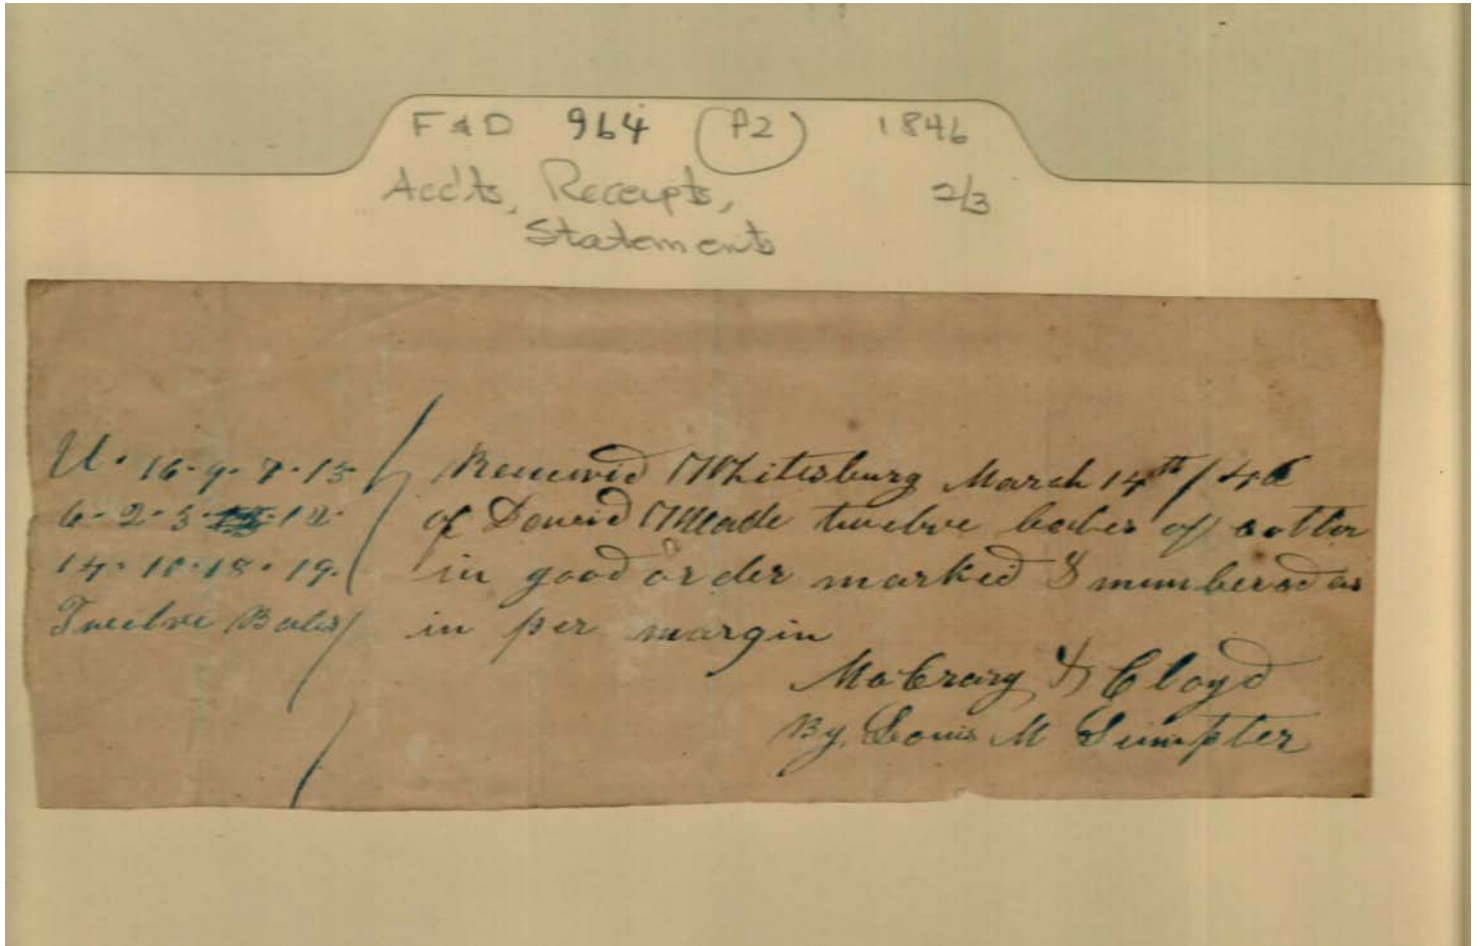 F & D 964 (P2) 1846
Accts, Receipts, 2/3
Statements
U. 16. 9. 7. 13
6. 2. 3. 12.
14. 11. 18. 19.
Twelve Bales
Received Whitesburg March 14th / 46
of David Wade twelve bales of cotton
in good order marked & numbered as
in per margin
McCrary & Cloyd
By. Louis M Sumpter